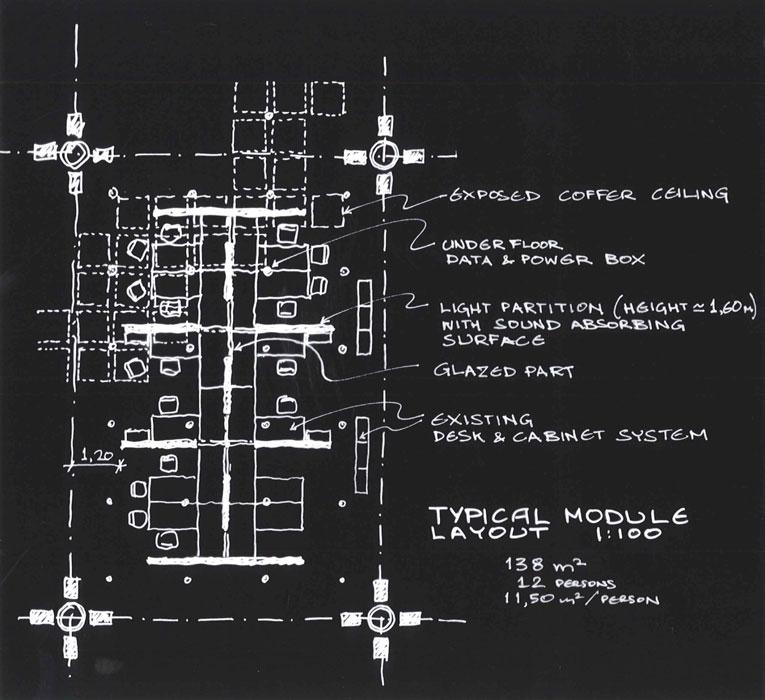 EXPOSED COFFER CEILING
UNDERFLOOR
DATA & POWER BOX
LIGHT PARTITION (HEIGHT ≃ 1,60 M)
WITH SOUND ABSORBING
SURFACE
GLAZED PART
EXISTING
DESK & CABINET SYSTEM
1,20
TYPICAL MODULE
LAYOUT 1:100
138 m²
12 PERSONS
11,50 m²/PERSON